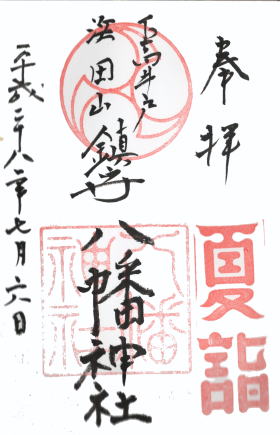 奉拝
夏詣
下高井戸
浜田山
鎮守
八幡神社
八幡
神社
平成二十八年七月六日